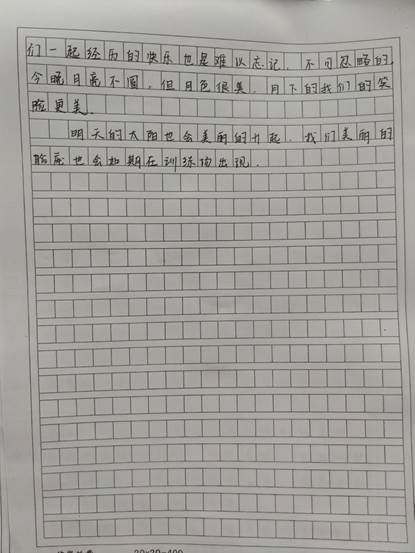 们一起经历的快乐也是难以忘记、不可忽略的,
今晚月亮不圆,但月色很美,月下的我们的笑
脸更美.
明天的太阳也会美丽的升起,我们美丽的
脸庞也会如期在训练场出现.
20×20=400